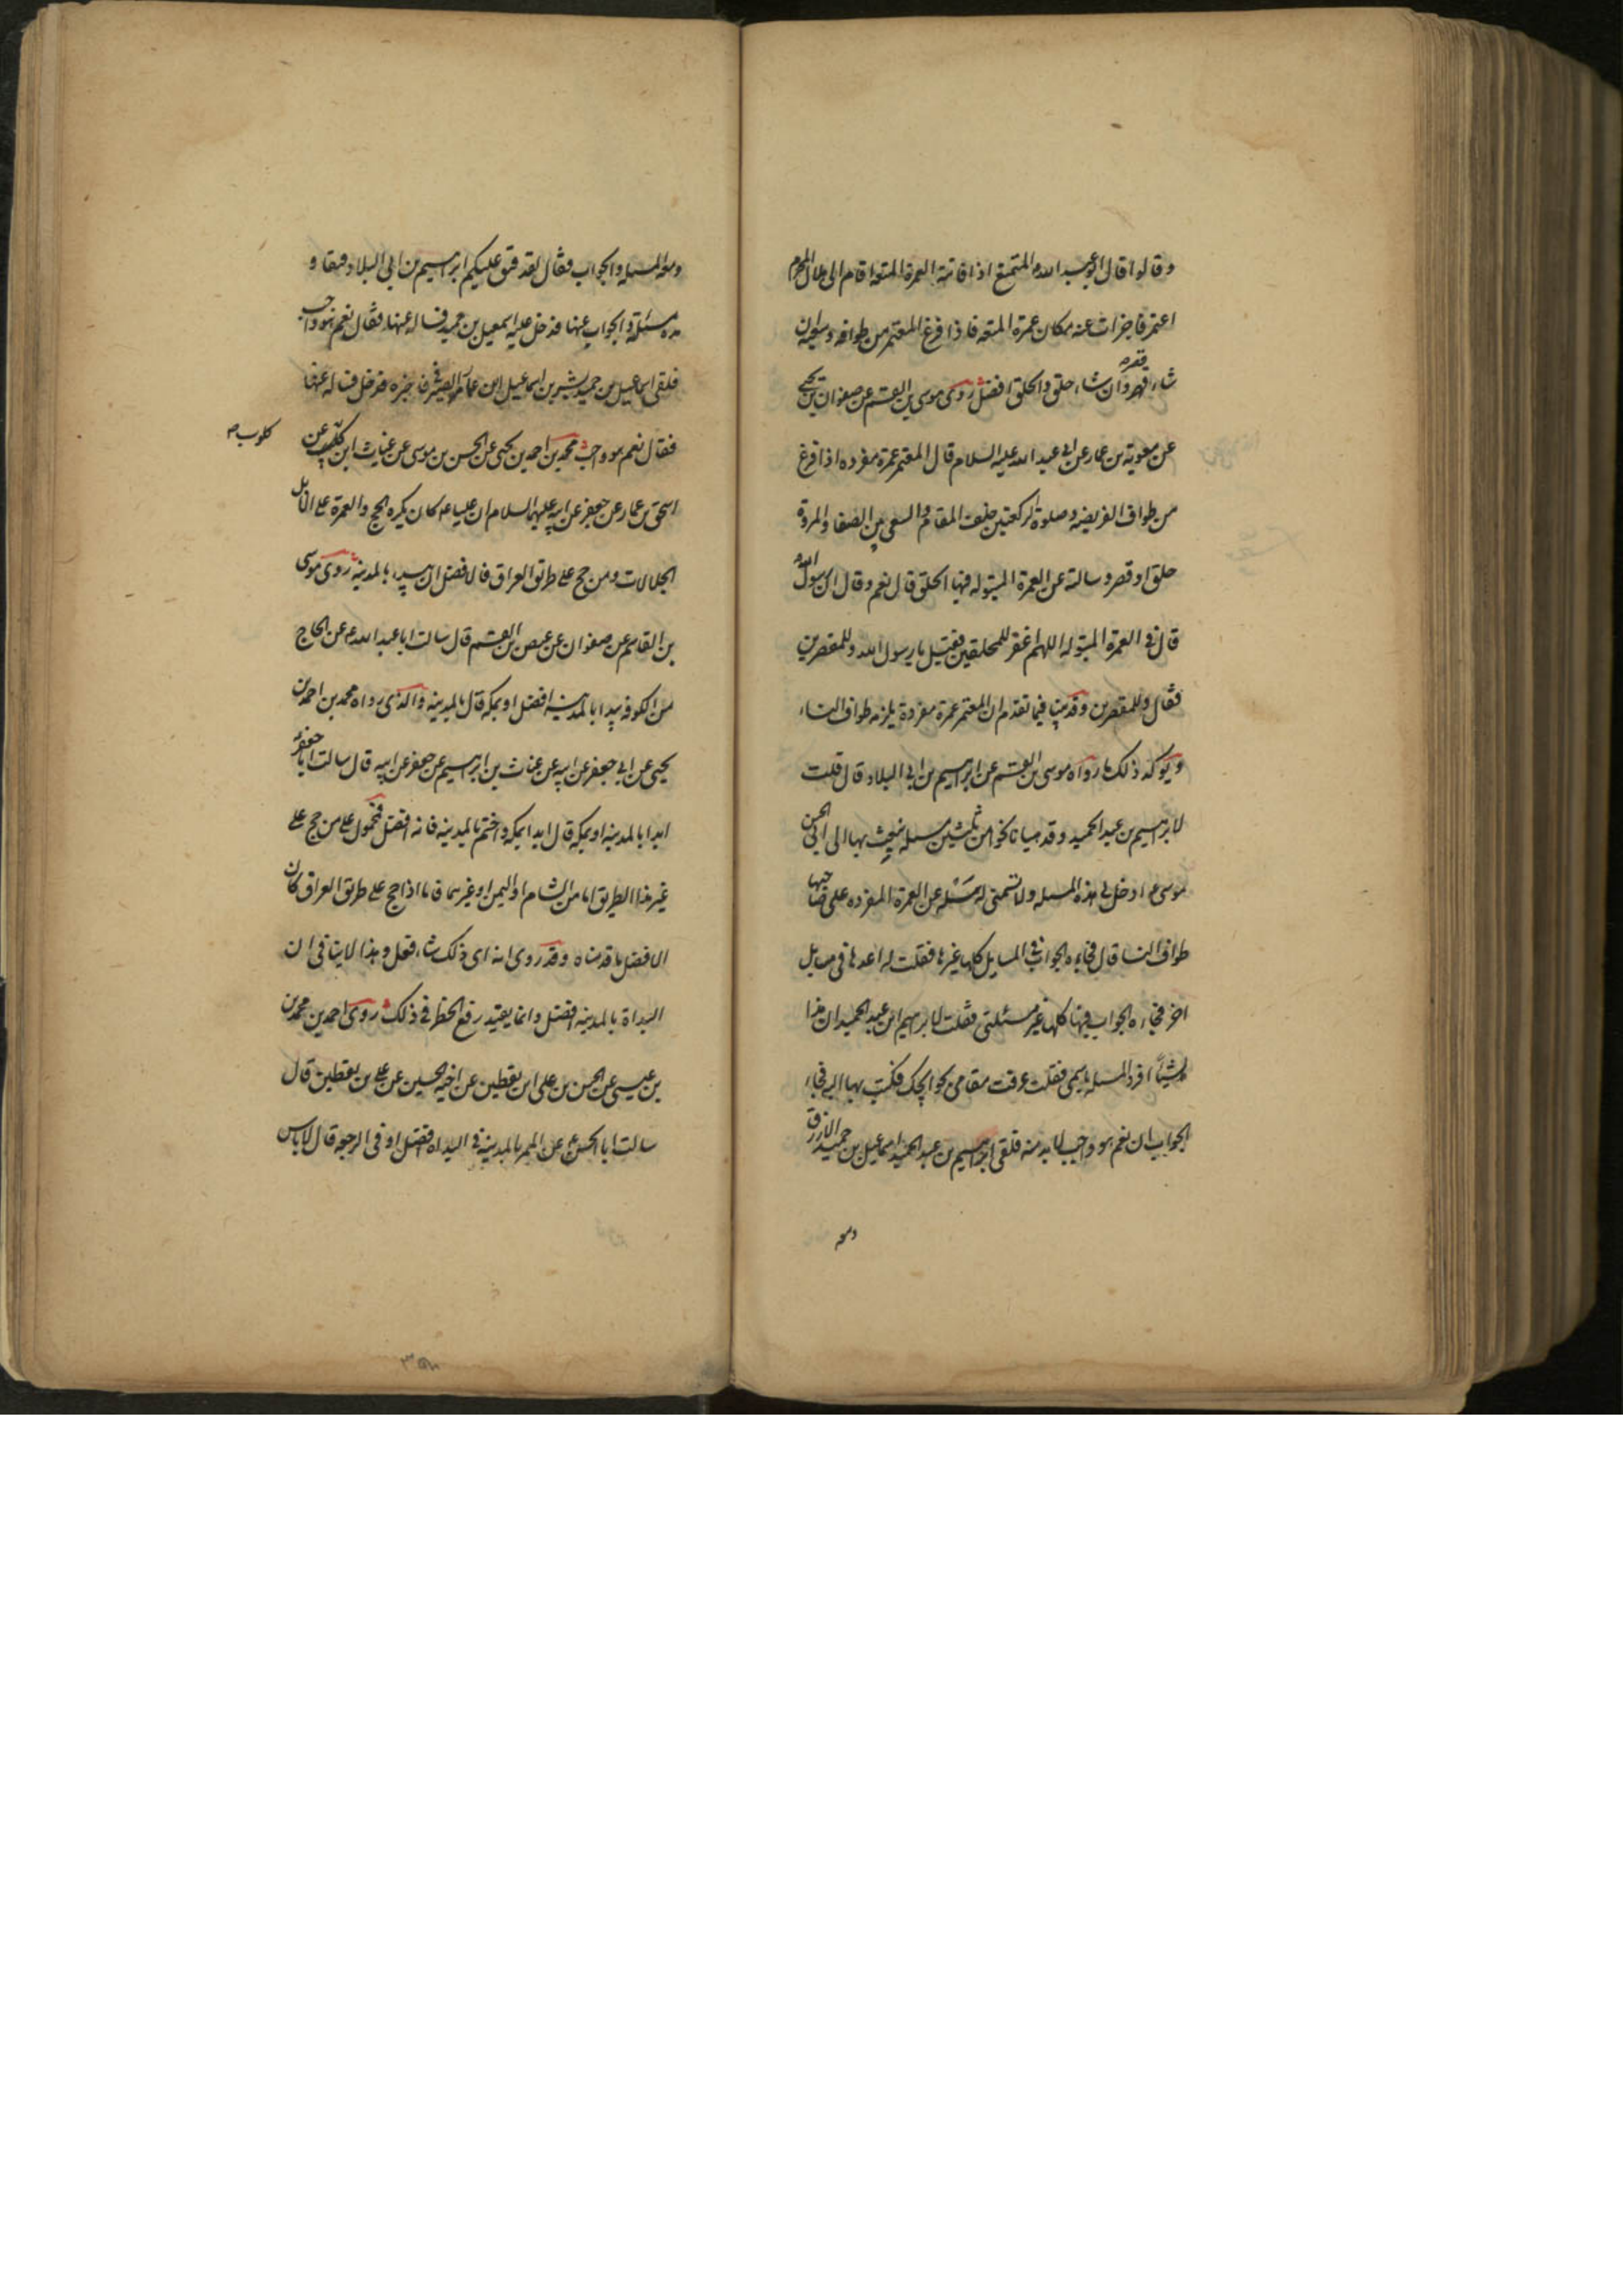 وقالوا قال ابو عبد الله المتمتع اذا فاتته العمرة المتعه اقام الى هلال المحرم
اعتمر فاجزات عنه مكان عمرة المتعه فاذا فرغ المعتمر من طوافه وسعيه ان
شاء قصر وان شاء حلق والحلق افضل روى موسى بن القسم عن صفوان بن يحيى
عن معوية بن عمار عن ابى عبد الله عليه السلام قال المعتمر عمرة مفرده اذا فرغ
من طواف الفريضه وصلوة الركعتين خلف المقام والسعى بين الصفا والمروة
حلق او قصر وسالته عن العمرة المبتوله فيها الحلق قال نعم وقال ان رسول الله
قال فى العمرة المبتوله اللهم اغفر للمحلقين فقيل يا رسول الله وللمقصرين
فقال وللمقصرين وقد بين فيما تقدم ان المعتمر عمرة مفردة يلزمه طواف النساء
ويوكد ذلك ما رواه موسى بن القسم عن ابرهيم بن ابى البلاد قال قلت
لابرهيم بن عبد الحميد وقد هيانا نحوا من ثلثين مسله نبعث بها الى ابى الحسن
موسى ع ادخل لى هذه المسله ولا تسمنى له سله عن العمرة المفرده على صاحبها
طواف النسا قال فجاءه الجواب فى المسايل كلها غيرها فقلت له اعدها فى مسايل
اخر فجاءه الجواب فيها كلها غير مسئلتى فقلت لابرهيم ابن عبد الحميد ان هذا
لشيئا افرد المسله باسمى فقلت عرفت مقامى بحوايجك فكتب بها اليه فجاء
الجواب ان نعم هو واجب لابد منه فلقى ابرهيم بن عبد الحميد اسماعيل بن حميد الازرق
ومعه
ومعه المسله والجواب فقال لقد فتق عليكم ابرهيم بن ابى البلاد فتقا و
هذه مسئلة والجواب عنها فدخل عليه اسمعيل بن حميد فساله عنها فقال نعم هو واجب
فلقى اسماعيل بن حميد بشر بن اسماعيل ابن عمار الصيرفى فاخبره فدخل فساله عنها
فقال نعم هو واجب محمد بن احمد بن يحيى عن الحسن بن موسى عن غياث ابن كليب عن
كلوب
اسحق بن عمار عن جعفر عن ابيه عليهما السلام ان عليا ع كان يكره الحج والعمرة على الابل
الجلالات ومن حج على طريق العراق فالافضل ان يبداء بالمدينة روى موسى
بن القاسم عن صفوان عن عيص بن القسم قال سالت ابا عبد الله ع عن الحاج
من الكوفه يبدا بالمدينه افضل او بمكه قال بالمدينه والذى رواه محمد بن احمد بن
يحيى عن ابى جعفر عن ابيه عن غياث بن ابرهيم عن جعفر عن ابيه قال سالت ابا جعفر
ابدا بالمدينه او بمكه قال ابدا بمكه واختم بالمدينه فانه افضل فمحمول على من حج على
غير هذا الطريق اما من الشام او اليمن او غيرهما فاما اذا حج على طريق العراق كان
الافضل ما قدمناه وقد روى انه اى ذلك شاء فعل وهذا لا ينافى ان
البداة بالمدينه افضل وانما يفيد رفع الحظر فى ذلك روى احمد بن محمد بن
بن عيسى عن الحسن بن على ابن يقطين عن اخيه الحسين عن على بن يقطين قال
سالت ابا الحسن ع عن الممر بالمدينه فى البداه افضل او فى الرجعه قال لا باس